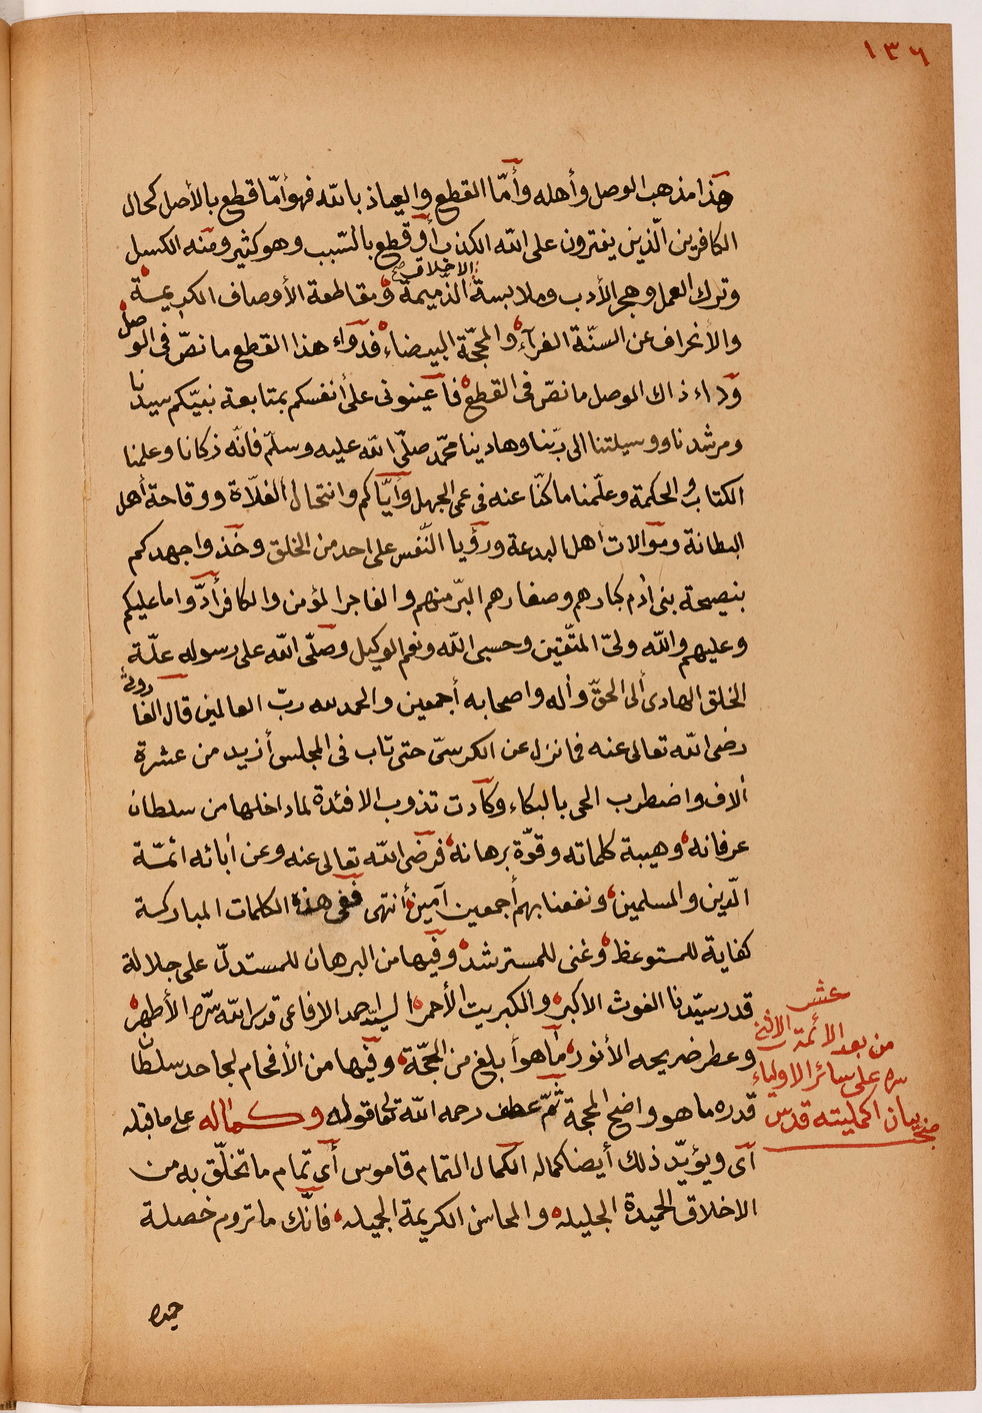 ١٣٦
هذا مذهب الوصل وأهله وأمّا القطع والعياذ بالله فهو أمّا قطع بالأصل كحال
الكافرين الّذين يفترون على الله الكذب أو قطع بالسّبب وهو كثير ومنه الكسل
وترك العمل وهجر الأدب وملابسة الاخلاق الذّميمة ومقاطعة الأوصاف الكريمة
والانحراف عن السنّة الغرآء والمحجّة البيضاء فدواء هذا القطع ما نصّ فى الوصل
وداء ذاك الوصل ما نصّ فى القطع فأعينونى على أنفسكم بمتابعة نبيّكم سيدنا
ومرشدنا ووسيلتنا الى ربّنا وهادينا محمّد صلّى الله عليه وسلّم فانّه زكانا وعلمنا
الكتاب والحكمة وعلّمنا ما كنّا عنه فى عمى الجهل وايّاكم وانتحال الغلاة ووقاحة أهل
البطانة وموالات اهل البدعة ورؤيا النّفس على احد من الخلق وخذوا جهدكم
بنصيحة بنى أدم كبارهم وصغارهم البرّ منهم والفاجر المؤمن والكافر أدّوا ما عليكم
وعليهم والله ولىّ المتّقين وحسبى الله ونعم الوكيل وصلّى الله على رسوله علّة
الخلق الهادى الى الحقّ وأله واصحابه أجمعين والحمد لله ربّ العالمين قال الفاروثى
رضى الله تعالى عنه فما نزل عن الكرسىّ حتى تاب فى المجلس أزيد من عشرة
ألاف واضطرب الحى بالبكاء وكادت تذوب الافئدة لما داخلها من سلطان
عرفانه وهيبة كلماته وقوّة برهانه فرضى الله تعالى عنه وعن أبائه ائمّة
الّدين والمسلمين ونفعنا بهم أجمعين آمين أنتهى ففى هذه الكلمات المباركة
كفاية للمستوعظ وغنى للمسترشد وفيها من البرهان للمستدلّ على جلالة
قدر سيّدنا الغوث الاكبر والكبريت الأحمر السيّد احمد الرفاعى قدس الله سرّه الأطهر
وعطر ضريحه الأنور ما هو أبلغ من الحجّة وفيها من الأفحام لجاحد سلطان
قدره ما هو واضح المحجة ثمّ عطف رحمه الله تعالى قوله وكماله على ما قبله
أى ويؤيّد ذلك أيضا كماله الكمال التمام قاموس أى تمام ما تخلّق به من
الاخلاق الحميدة الجليله والمحاسن الكريمة الجميله فانّك ما تروم خصلة
حميده
عشر
من بعد الائمة الاثنى
سره على سائر الاولياء
بيان اكمليته قدس